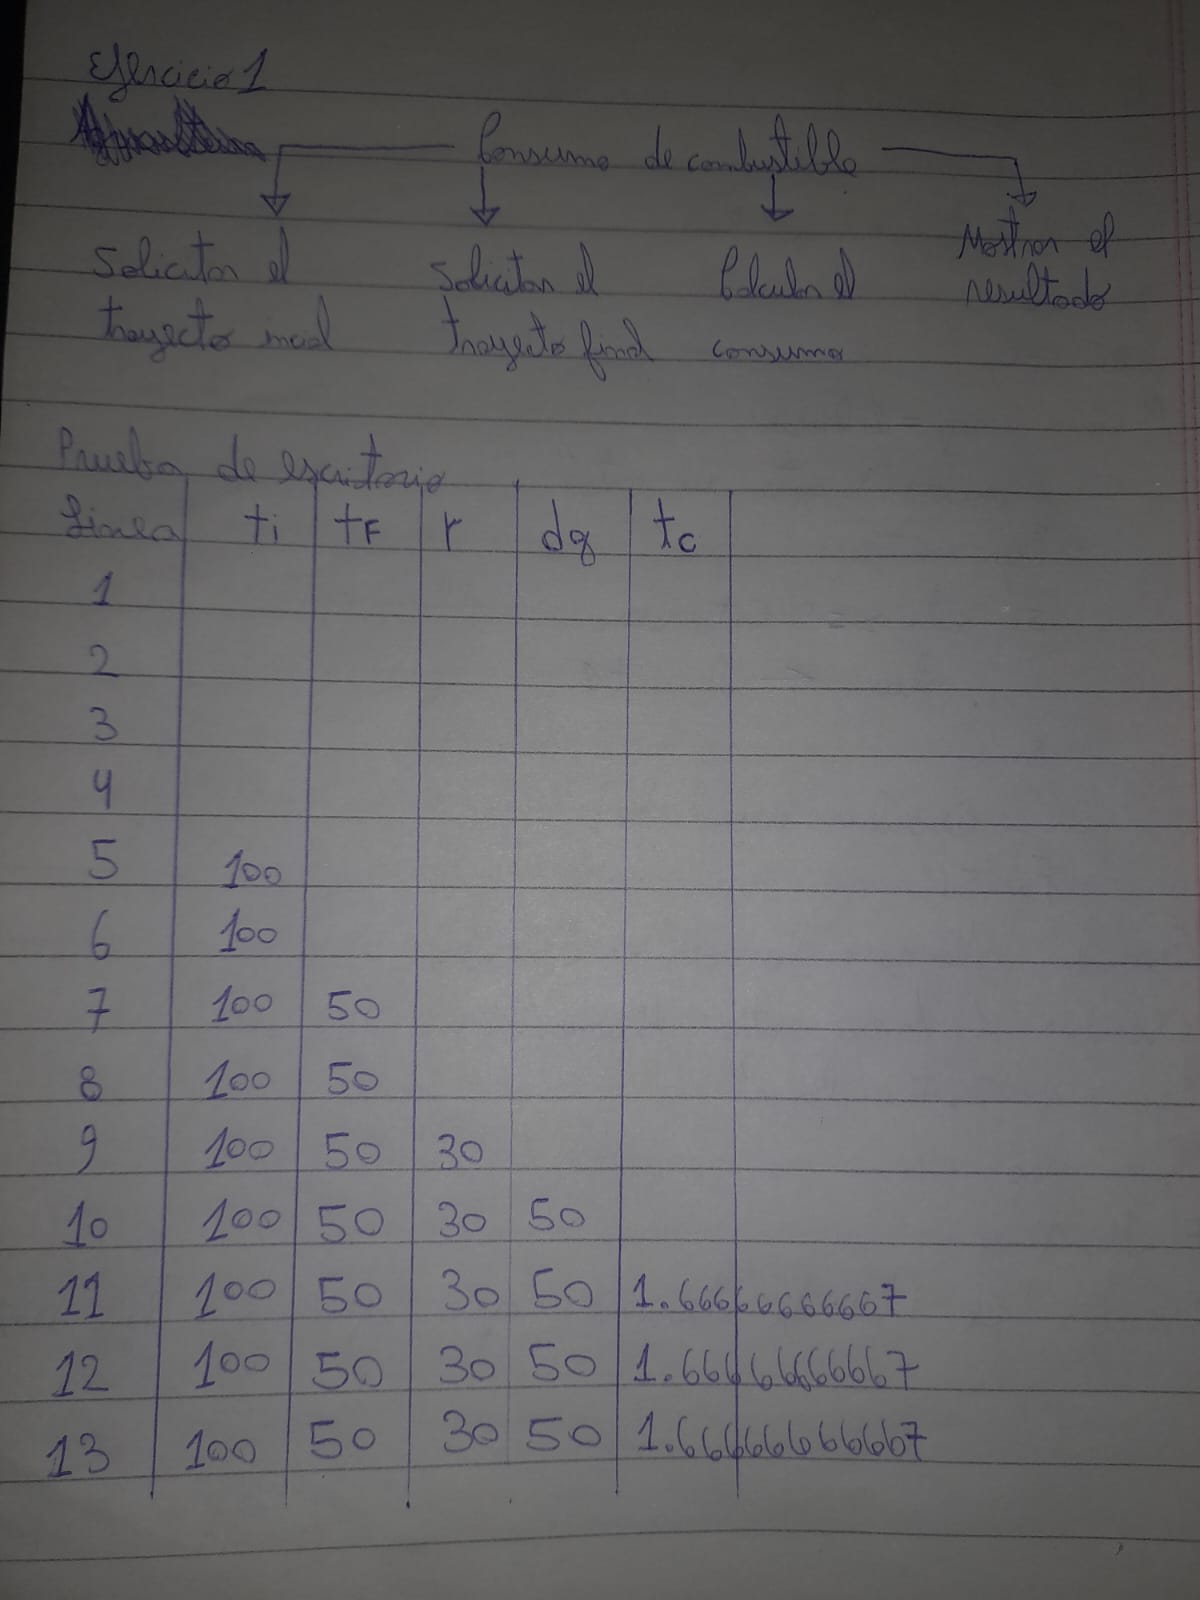 Ejercicio 1
Consumo de combustible
Solicitar el trayecto incial
Solicitar el trayecto final
Calcular el consumo
Mostrar el resultado
Prueba de escritorio
Linea ti tF r dg tc
1
2
3
4
5 100
6 100
7 100 50
8 100 50
9 100 50 30
10 100 50 30 50
11 100 50 30 50 1.66666666667
12 100 50 30 50 1.66666666667
13 100 50 30 50 1.66666666667